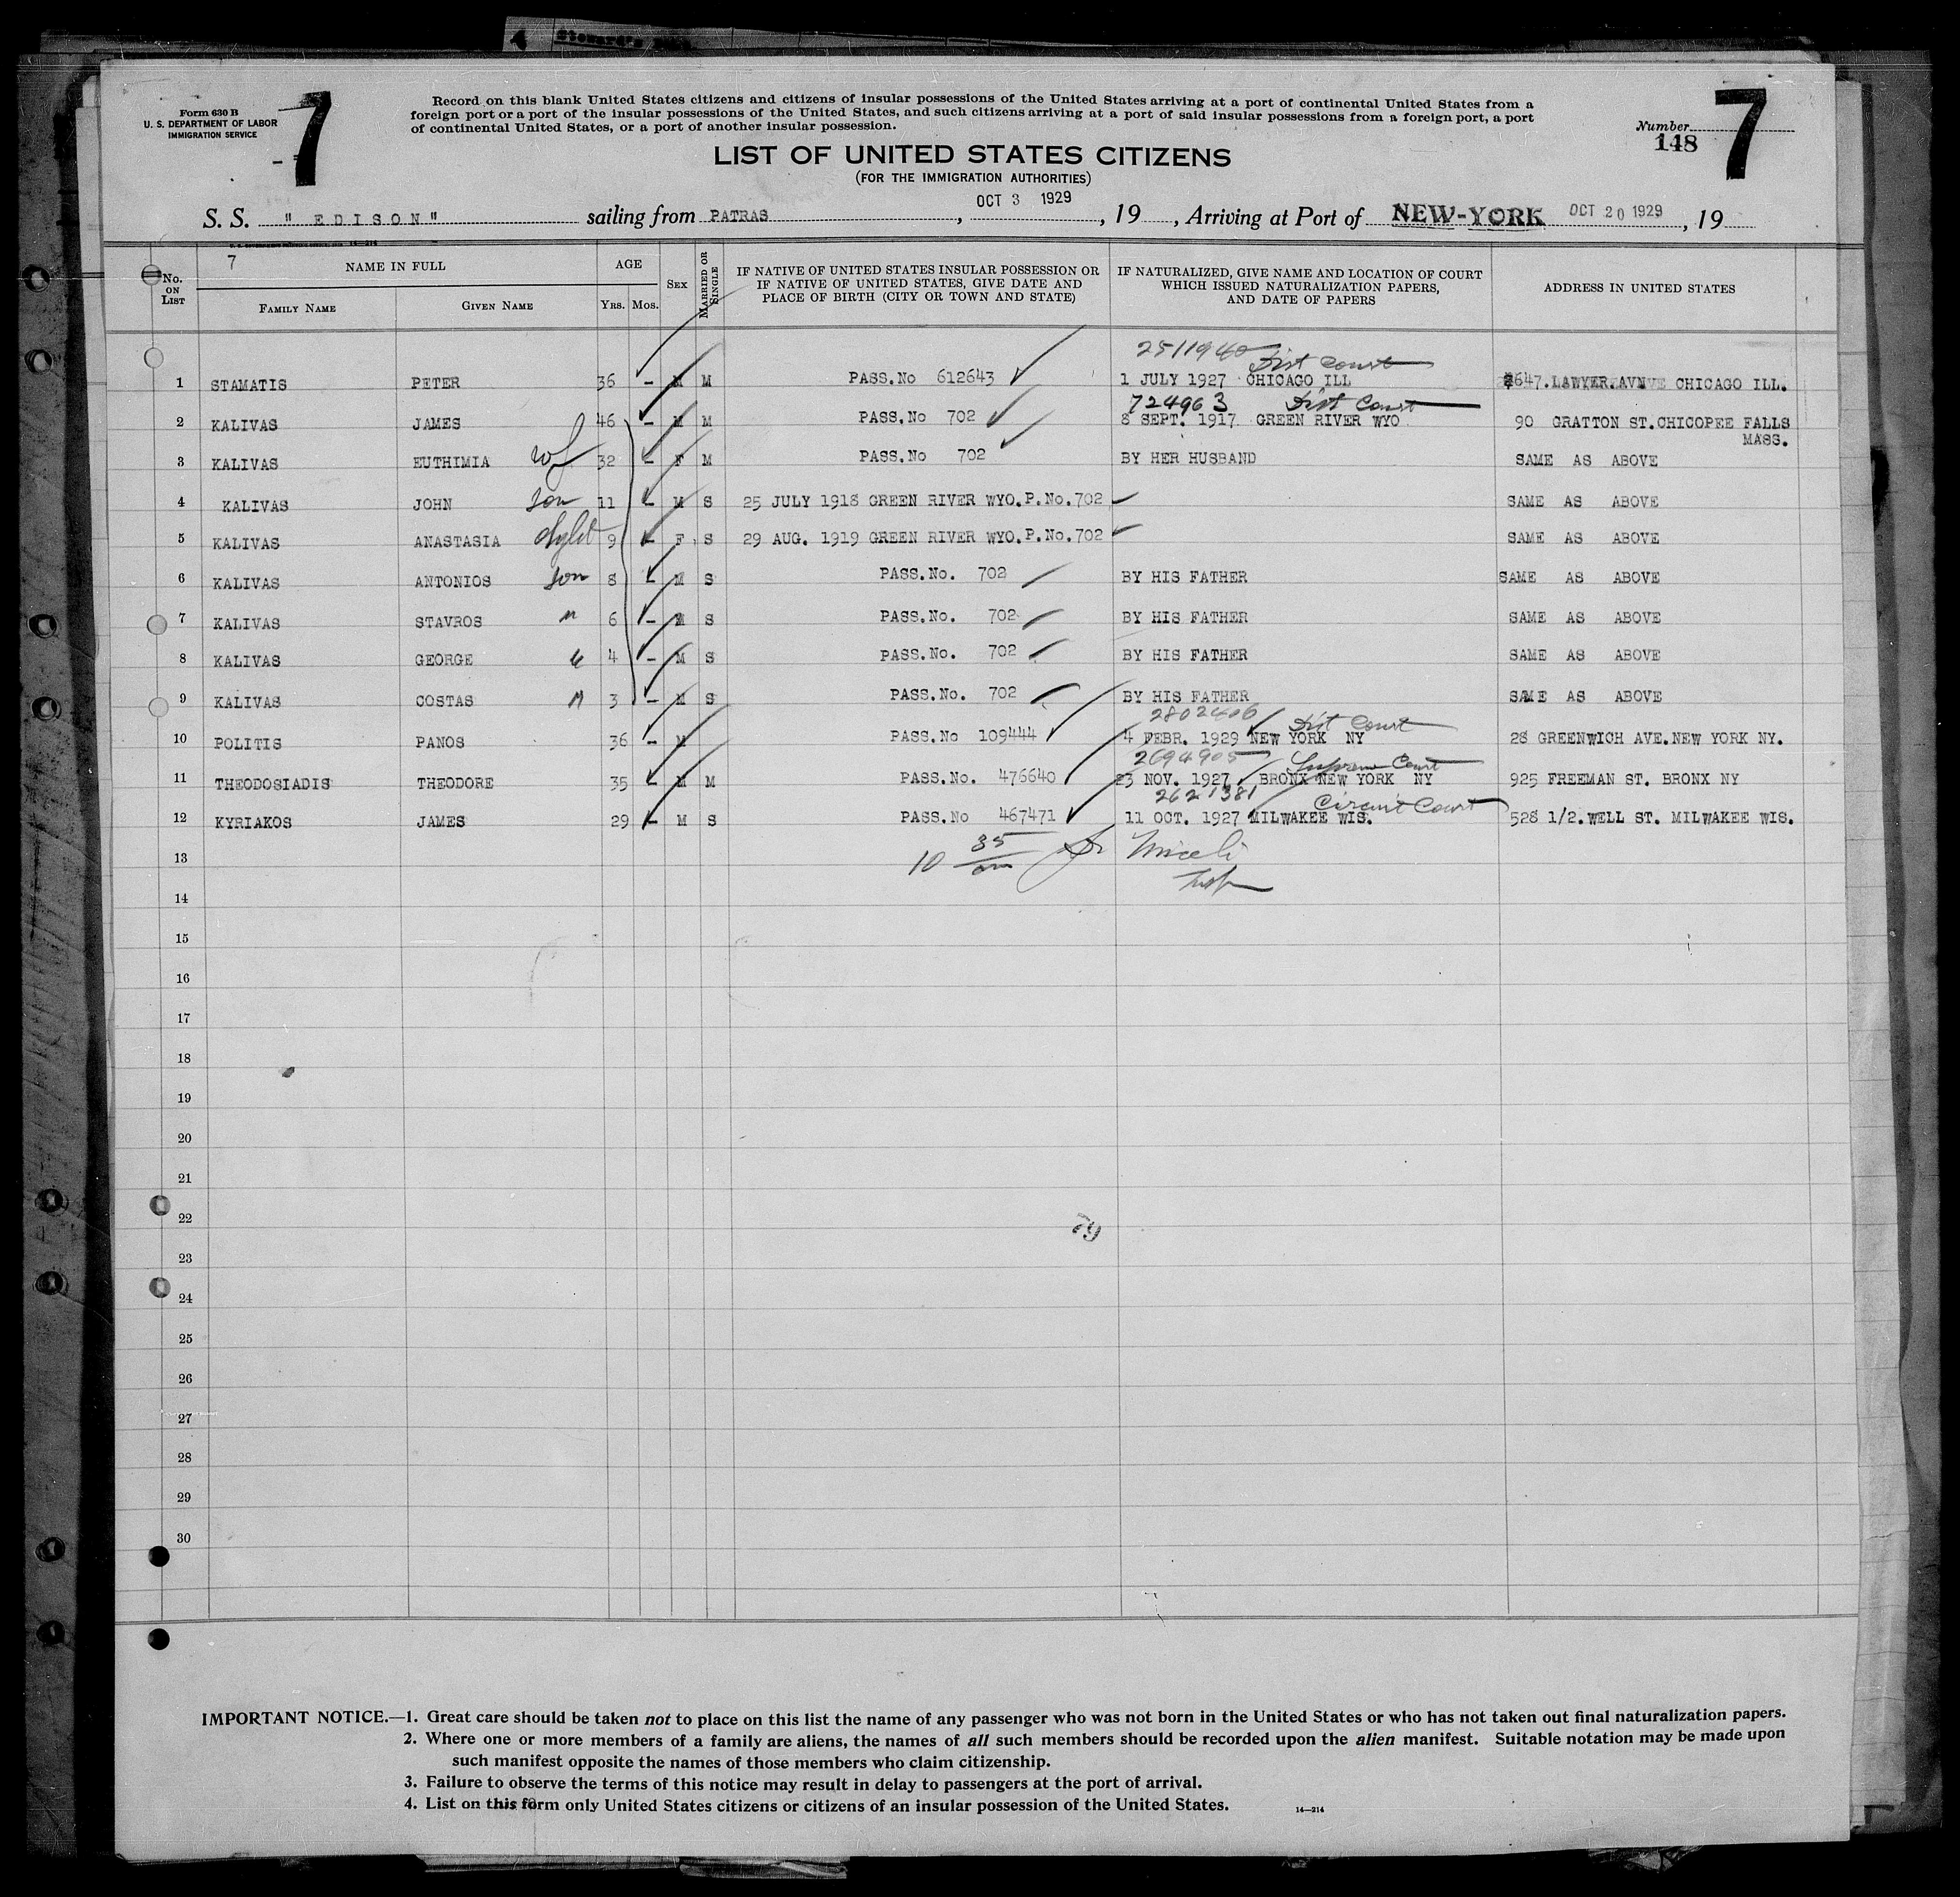 Steward's
Form 630 B
U. S. DEPARTMENT OF LABOR
IMMIGRATION SERVICE
7
Record on this blank United States citizens and citizens of insular possessions of the United States arriving at a port of continental United States from a
foreign port or a port of the insular possessions of the United States, and such citizens arriving at a port of said insular possessions from a foreign port, a port
of continental United States, or a port of another insular possession.
Number
148
7
LIST OF UNITED STATES CITIZENS
(FOR THE IMMIGRATION AUTHORITIES)
S. S. " EDISON " sailing from PATRAS, OCT 3 1929, 19, Arriving at Port of NEW-YORK OCT 20 1929, 19
7
No. ON LIST NAME IN FULL FAMILY NAME GIVEN NAME AGE YRS. MOS. SEX MARRIED OR SINGLE IF NATIVE OF UNITED STATES INSULAR POSSESSION OR IF NATIVE OF UNITED STATES, GIVE DATE AND PLACE OF BIRTH (CITY OR TOWN AND STATE) IF NATURALIZED, GIVE NAME AND LOCATION OF COURT WHICH ISSUED NATURALIZATION PAPERS, AND DATE OF PAPERS ADDRESS IN UNITED STATES
2511940 Dist Court
1 STAMATIS PETER 36 - M M PASS.No 612643 1 JULY 1927 CHICAGO ILL 2647.LAWYER.AVNVE CHICAGO ILL.
724963 Dist Court
2 KALIVAS JAMES 46 - M M PASS.No 702 8 SEPT. 1917 GREEN RIVER WYO 90 GRATTON ST.CHICOPEE FALLS
MASS.
3 KALIVAS EUTHIMIA wf 32 - F M PASS.No 702 BY HER HUSBAND SAME AS ABOVE
4 KALIVAS JOHN son 11 - M S 25 JULY 1918 GREEN RIVER WYO.P.No.702 SAME AS ABOVE
5 KALIVAS ANASTASIA 9 - F S 29 AUG. 1919 GREEN RIVER WYO.P.No.702 SAME AS ABOVE
6 KALIVAS ANTONIOS son 8 - M S PASS.No. 702 BY HIS FATHER SAME AS ABOVE
7 KALIVAS STAVROS " 6 - M S PASS.No. 702 BY HIS FATHER SAME AS ABOVE
8 KALIVAS GEORGE " 4 - M S PASS.No. 702 BY HIS FATHER SAME AS ABOVE
9 KALIVAS COSTAS " 3 - M S PASS.No. 702 BY HIS FATHER SAME AS ABOVE
2802406 Dist Court
10 POLITIS PANOS 36 - M PASS.No 109444 4 FEBR. 1929 NEW YORK NY 28 GREENWICH AVE.NEW YORK NY.
2694905 Supreme Court
11 THEODOSIADIS THEODORE 35 - M M PASS.No. 476640 23 NOV. 1927 BRONX NEW YORK NY 925 FREEMAN ST. BRONX NY
2621381 Circuit Court
12 KYRIAKOS JAMES 29 - M S PASS.No 467471 11 OCT. 1927 MILWAKEE WIS. 528 1/2.WELL ST. MILWAKEE WIS.
13 10 35/am
14
15
16
17
18
19
20
21
22
23
24
25
26
27
28
29
30
IMPORTANT NOTICE.—1. Great care should be taken not to place on this list the name of any passenger who was not born in the United States or who has not taken out final naturalization papers.
2. Where one or more members of a family are aliens, the names of all such members should be recorded upon the alien manifest. Suitable notation may be made upon
such manifest opposite the names of those members who claim citizenship.
3. Failure to observe the terms of this notice may result in delay to passengers at the port of arrival.
4. List on this form only United States citizens or citizens of an insular possession of the United States.
14—214